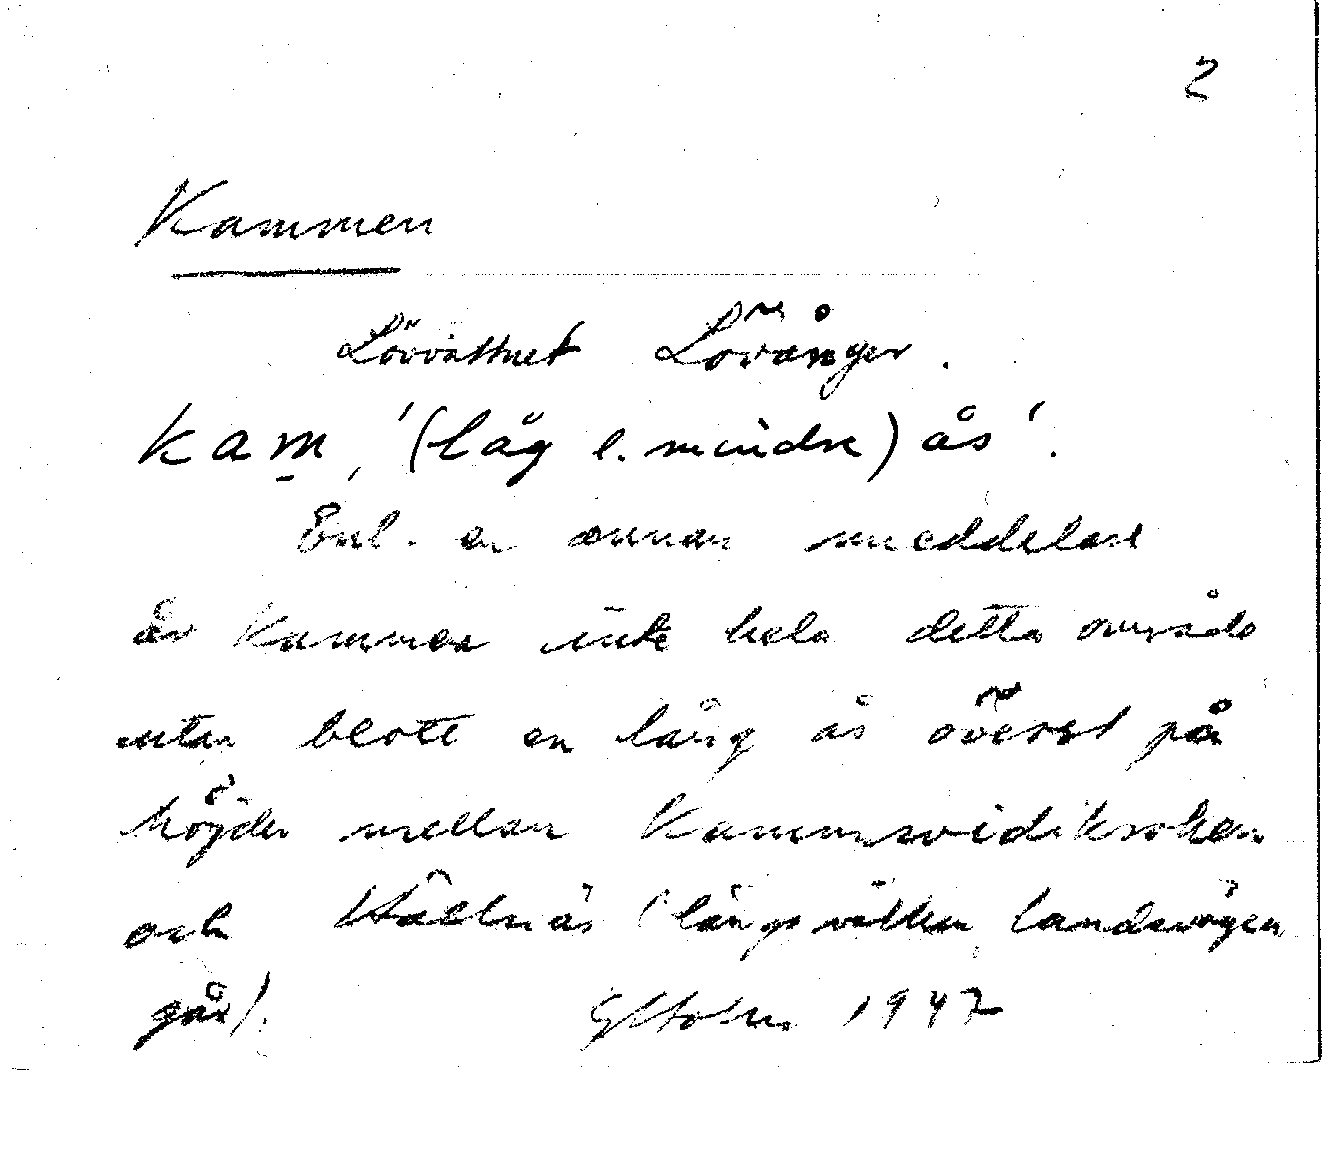 2
Kammen
Lövvattnet Lövånger.
kam̱, '(låg l. mindre) ås'.
Enl. en annan meddelare
är Kammen inte hela detta område
utan blott en lång ås överst på
höjden mellan Kammsvidikroken
och Hällnäs (längs vilken landsvägen
går).
GHolm 1947